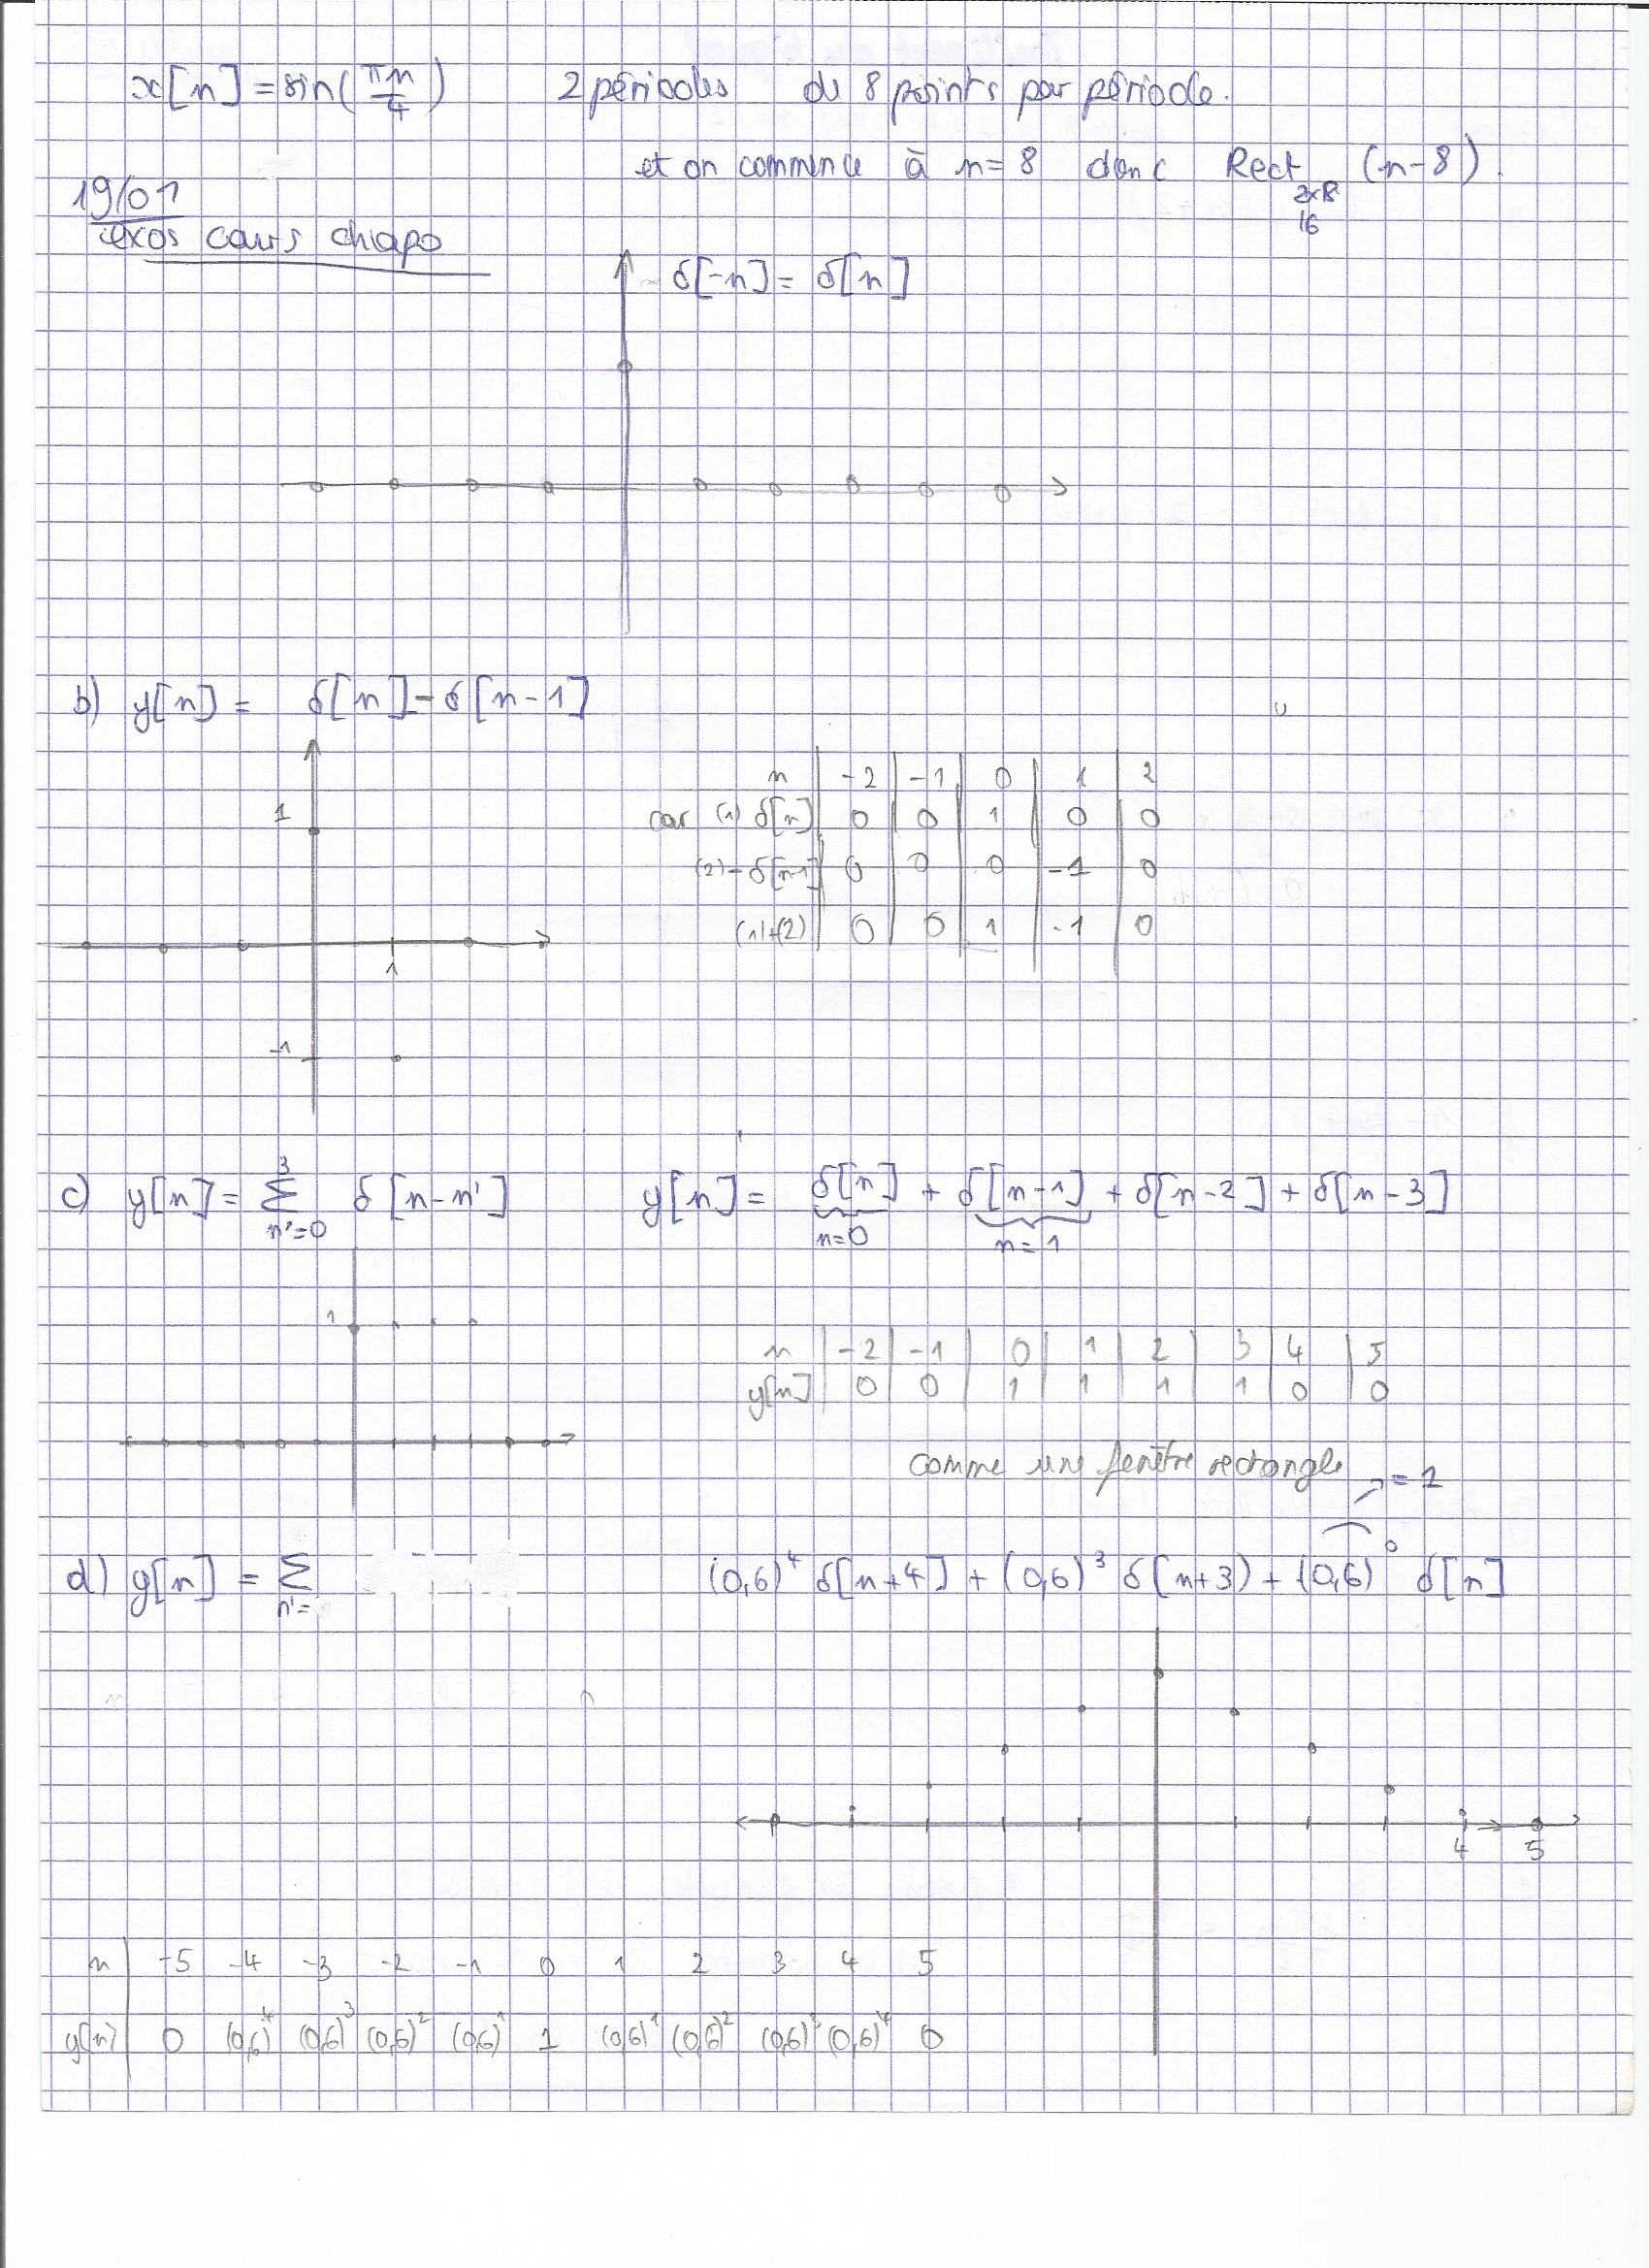 x[n] = sin(πn/4) 2 périodes de 8 points par période.
et on commence à n=8 donc Rect (n-8).
2x8
16
19/01
exos cours chapo
δ[-n] = δ[n]
b) y[n] = δ[n] - δ[n-1]
1
1
-1
n | -2 | -1 | 0 | 1 | 2
car (1) δ[n] | 0 | 0 | 1 | 0 | 0
(2) -δ[n-1] | 0 | 0 | 0 | -1 | 0
(1)+(2) | 0 | 0 | 1 | -1 | 0
c) y[n] = Σ_{n'=0}^{3} δ[n-n'] y[n] = δ[n] + δ[n-1] + δ[n-2] + δ[n-3]
n=0 n=1
1
n | -2 | -1 | 0 | 1 | 2 | 3 | 4 | 5
y[n] | 0 | 0 | 1 | 1 | 1 | 1 | 0 | 0
comme une fenêtre rectangle
= 1
d) y[n] = Σ_{n'=} (0,6)^4 δ[n+4] + (0,6)^3 δ(n+3) + (0,6)^0 δ[n]
4 5
n | -5 -4 -3 -2 -1 0 1 2 3 4 5
y[n] | 0 (0,6)^4 (0,6)^3 (0,6)^2 (0,6)^1 1 (0,6)^1 (0,6)^2 (0,6)^3 (0,6)^4 0